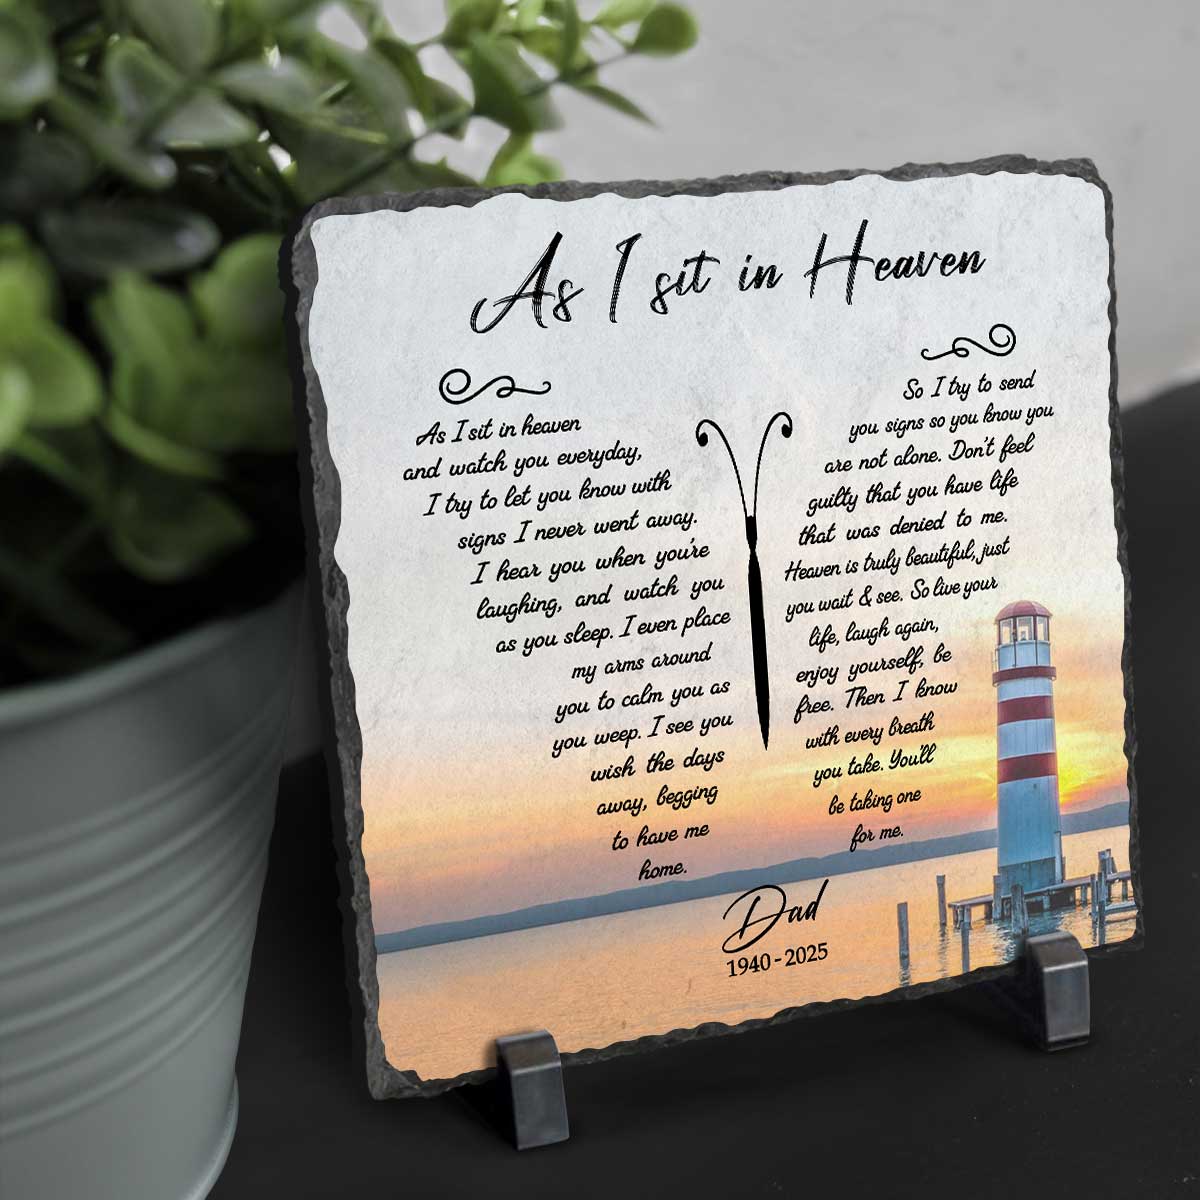 As I sit in Heaven
As I sit in heaven
and watch you everyday,
I try to let you know with
signs I never went away.
I hear you when you're
laughing, and watch you
as you sleep. I even place
my arms around
you to calm you as
you weep. I see you
wish the days
away, begging
to have me
home.
So I try to send
you signs so you know you
are not alone. Don't feel
guilty that you have life
that was denied to me.
Heaven is truly beautiful, just
you wait & see. So live your
life, laugh again,
enjoy yourself, be
free. Then I know
with every breath
you take. You'll
be taking one
for me.
Dad
1940-2025